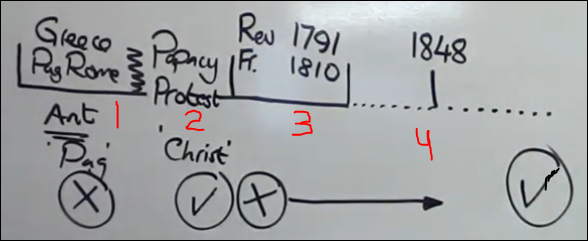 Greece
Pag Rome
Papacy
Protest
Rev 1791
Fr. 1810
1848
Ant
'Pag'
'Christ'
1
2
3
4